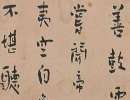 善鼓雲
嘗聞帝
夷空自
不堪聽